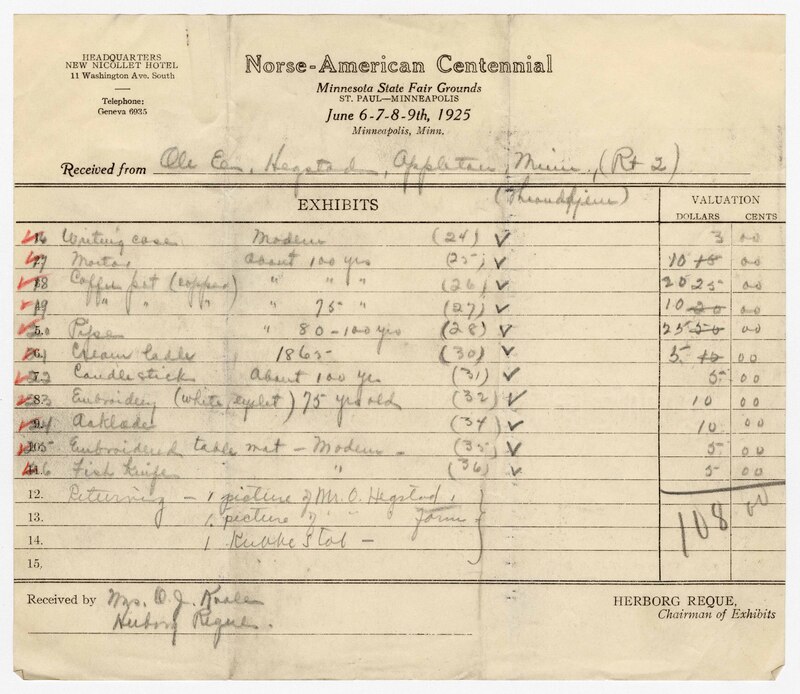 HEADQUARTERS
NEW NICOLLET HOTEL
11 Washington Ave. South
Telephone:
Geneva 6935
Norse-American Centennial
Minnesota State Fair Grounds
ST. PAUL—MINNEAPOLIS
June 6-7-8-9th, 1925
Minneapolis, Minn.
Received from Ole En. Hegstad, Appleton, Minn., (Rt 2)
(Throndhjem)
EXHIBITS VALUATION
DOLLARS CENTS
16 Writing case Modern (24) ✓ 3 00
17 Mortar About 100 yrs (25) ✓ 10 15 00
18 Coffee pot (copper) " " " (26) ✓ 20 25 00
19 " " " " 75 " (27) ✓ 10 20 00
20 Pipe " 80-100 yrs (28) ✓ 25 50 00
21 Cream ladle 1865 (30) ✓ 5 10 00
22 Candlestick About 100 yrs (31) ✓ 5 00
23 Embroidery (white eyelet) 75 yrs old (32) ✓ 10 00
24 Aaklade (34) ✓ 10 00
25 Embroidered table mat - Modern - (35) ✓ 5 00
26 Fish Knife " (36) ✓ 5 00
12. Returning - 1 picture of Mr. O. Hegstad,
13. 1 picture of " farm
14. 1 Kubbe Stol -
15.
108 00
Received by Mrs. O. J.
Herborg Reque.
HERBORG REQUE,
Chairman of Exhibits